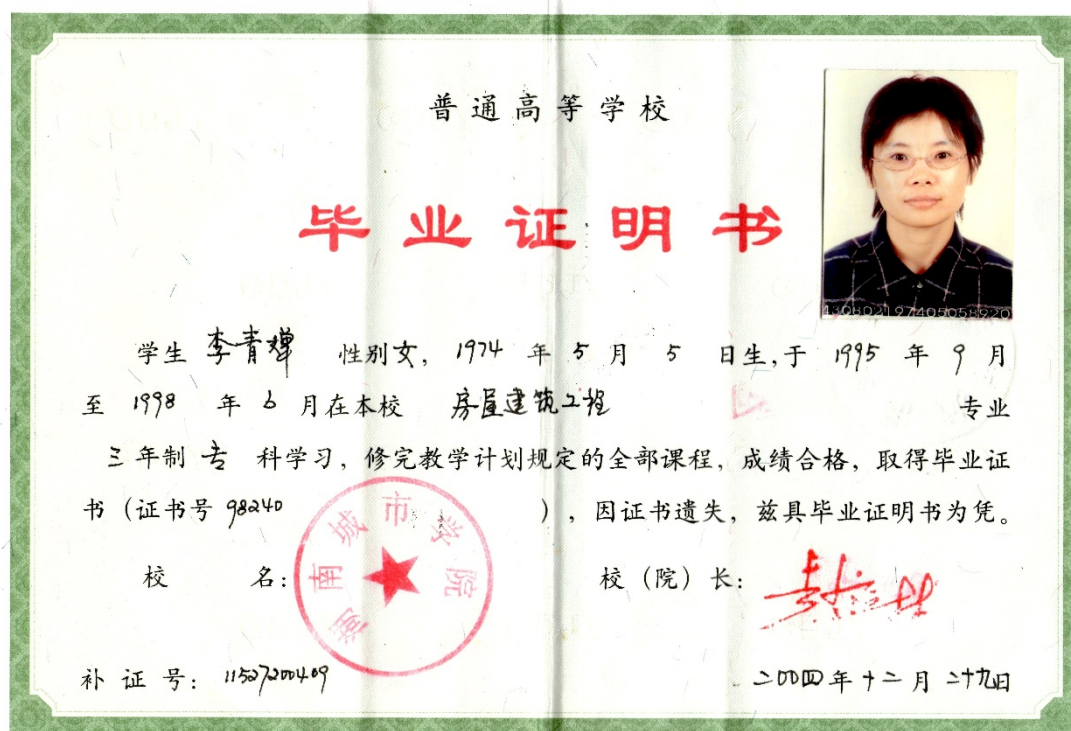 普通高等学校
毕业证明书
430802197405058920
学生 李青婵 性别女, 1974 年 5 月 5 日生,于 1995 年 9 月
至 1998 年 6 月在本校 房屋建筑工程 专业
三年制 专 科学习，修完教学计划规定的全部课程，成绩合格，取得毕业证
书（证书号 98240 ），因证书遗失，兹具毕业证明书为凭。
校 名: 湖南城市学院 校（院）长:
补 证 号: 11527200409 二〇〇四年十二月二十九日